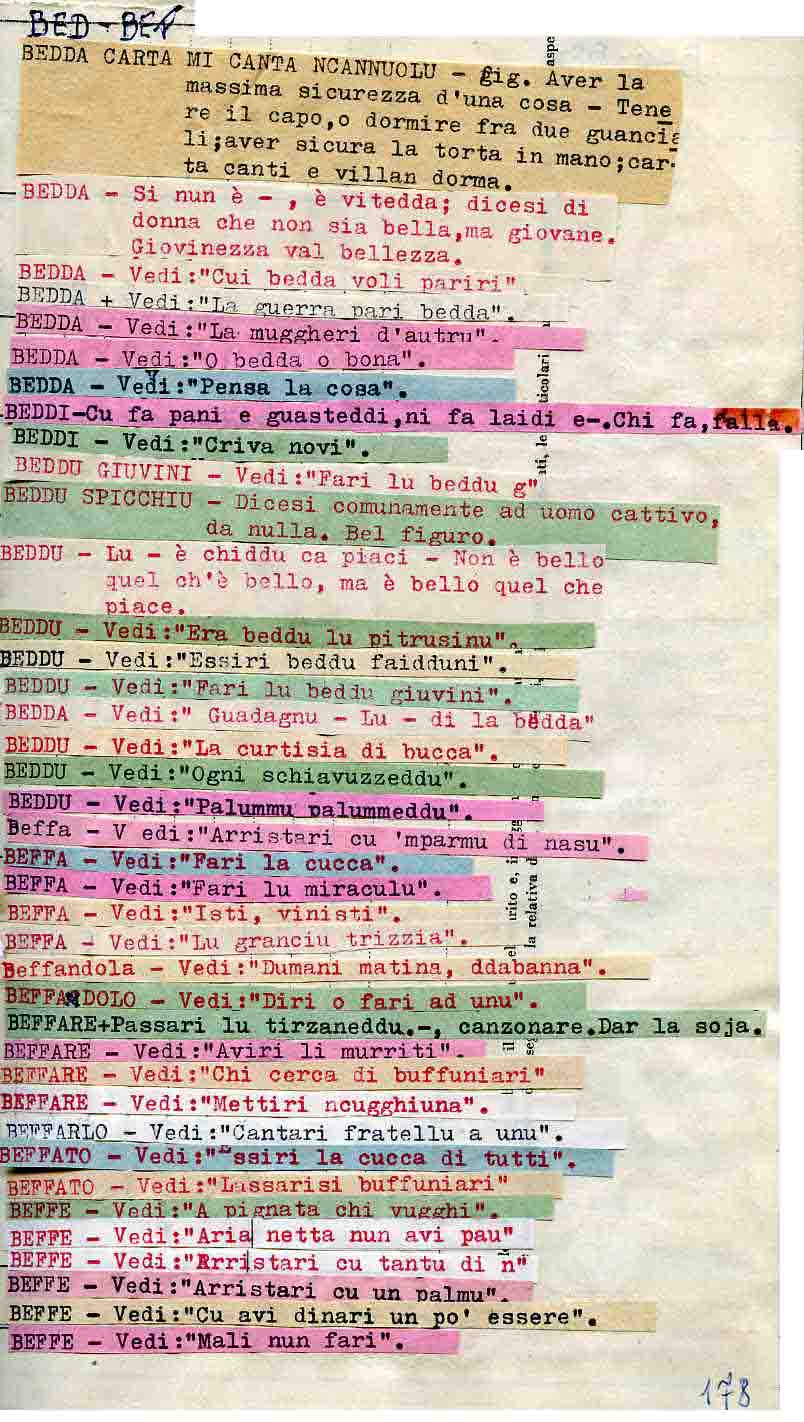 BED - BEF
BEDDA CARTA MI CANTA NCANNUOLU - fig. Aver la
massima sicurezza d'una cosa - Tene
re il capo,o dormire fra due guancia
li;aver sicura la torta in mano;car-
ta canti e villan dorma.
BEDDA - Si nun è - , è vitedda; dicesi di
donna che non sia bella,ma giovane.
Giovinezza val bellezza.
BEDDA - Vedi:"Cui bedda voli pariri"
BEDDA + Vedi:"La guerra pari bedda".
BEDDA - Vedi:"La muggheri d'autru".
BEDDA - Vedi:"O bedda o bona".
BEDDA - Vedi:"Pensa la cosa".
BEDDI-Cu fa pani e guasteddi,ni fa laidi e-.Chi fa,falla.
BEDDI - Vedi:"Criva novi".
BEDDU GIUVINI - Vedi:"Fari lu beddu g"
BEDDU SPICCHIU - Dicesi comunamente ad uomo cattivo,
da nulla. Bel figuro.
BEDDU - Lu - è chiddu ca piaci - Non è bello
quel ch'è bello, ma è bello quel che
piace.
BEDDU - Vedi:"Era beddu lu pitrusinu".
BEDDU - Vedi:"Essiri beddu faidduni".
BEDDU - Vedi:"Fari lu beddu giuvini".
BEDDA - Vedi:" Guadagnu - Lu - di la bedda"
BEDDU - Vedi:"La curtisia di bucca".
BEDDU - Vedi:"Ogni schiavuzzeddu".
BEDDU - Vedi:"Palummu palummeddu".
Beffa - V edi:"Arristari cu 'mparmu di nasu".
BEFFA - Vedi:"Fari la cucca".
BEFFA - Vedi:"Fari lu miraculu".
BEFFA - Vedi:"Isti, vinisti".
BEFFA - Vedi:"Lu granciu trizzia".
Beffandola - Vedi:"Dumani matina, ddabanna".
BEFFANDOLO - Vedi:"Diri o fari ad unu".
BEFFARE+Passari lu tirzaneddu.-, canzonare.Dar la soja.
BEFFARE - Vedi:"Aviri li murriti".
BEFFARE - Vedi:"Chi cerca di buffuniari"
BEFFARE - Vedi:"Mettiri ncugghiuna".
BEFFARLO - Vedi:"Cantari fratellu a unu".
BEFFATO - Vedi:"Essiri la cucca di tutti".
BEFFATO - Vedi:"Lassarisi buffuniari"
BEFFE - Vedi:"A pignata chi vugghi".
BEFFE - Vedi:"Aria netta nun avi pau"
BEFFE - Vedi:"Arristari cu tantu di n"
BEFFE - Vedi:"Arristari cu un palmu".
BEFFE - Vedi:"Cu avi dinari un po' essere".
BEFFE - Vedi:"Mali nun fari".
178